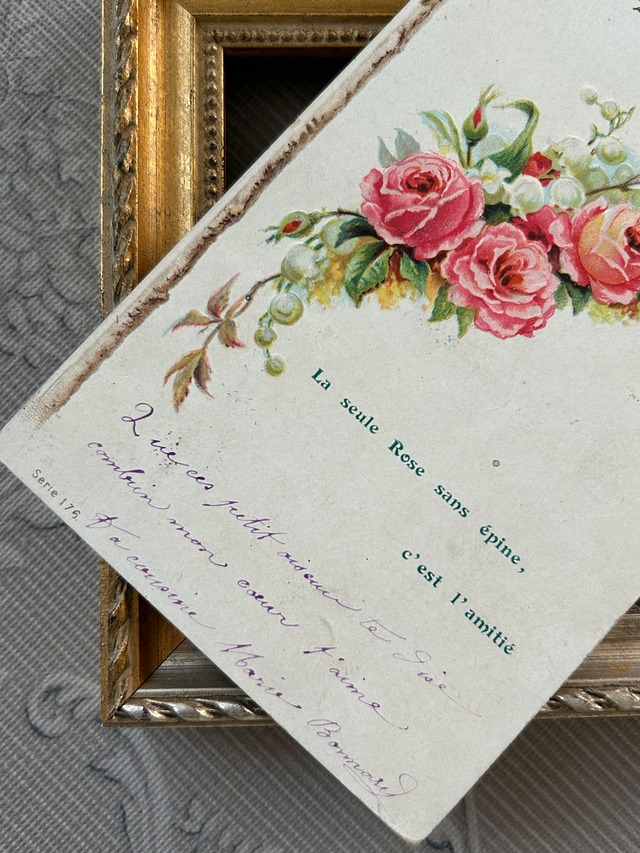 La seule Rose sans épine,
c'est l'amitié
Que ces petit oiseau te dise
combien mon cœur t'aime
Ta cousine Marie Bonnard
Serie 176